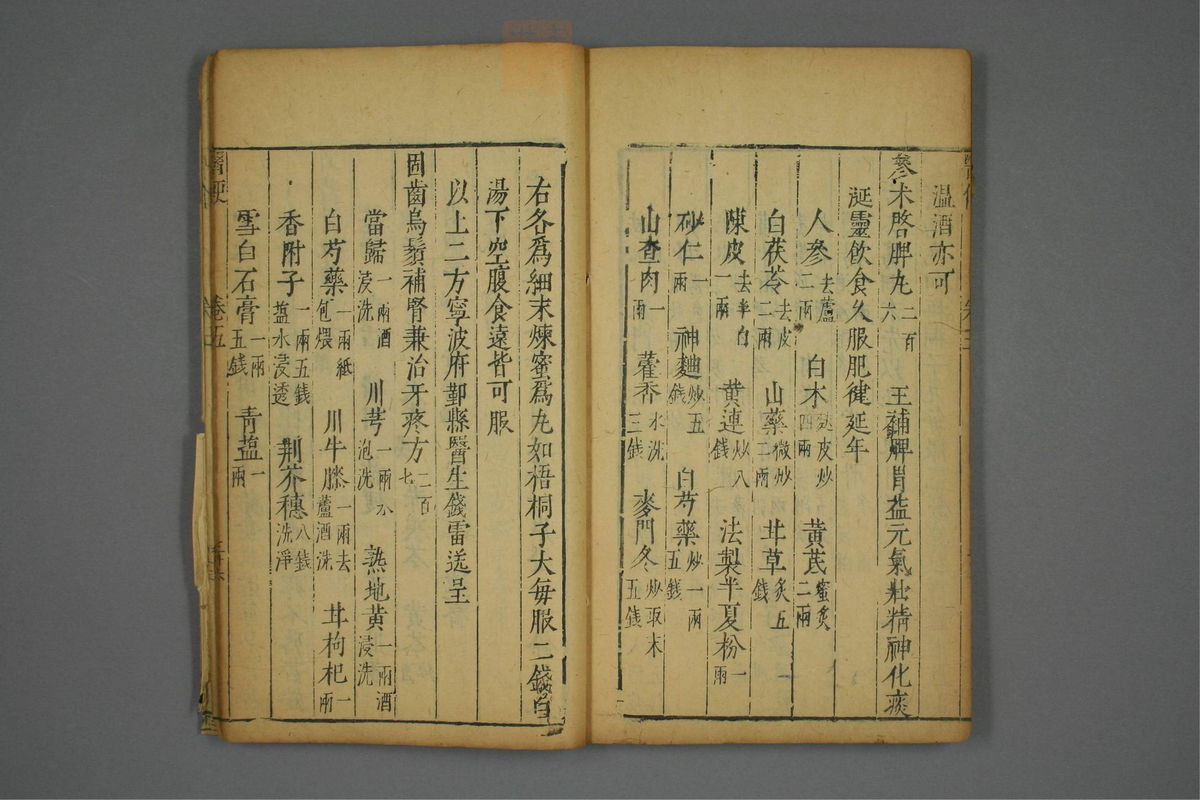 溫酒亦可
參朮啓脾丸二百六 王補脾胃益元氣壯精神化痰
涎靈飲食久服肥健延年
人參去蘆二兩 白朮麩皮炒四兩 黃芪蜜炙二兩
白茯苓去皮二兩 山藥微炒二兩 甘草炙五錢
陳皮去半白一兩 黃連炒八錢 法製半夏粉一兩
砂仁一兩 神麯炒五錢 白芍藥炒一兩五錢
山查肉一兩 藿香水洗三錢 麥門冬炒取末五錢
右各爲細末煉蜜爲丸如梧桐子大每服二錢白
湯下空腹食遠皆可服
以上二方寧波府鄞縣醫生錢雷送呈
固齒烏鬚補腎兼治牙疼方二百七
當歸一兩酒浸洗 川芎一兩水泡洗 熟地黃一兩酒浸洗
白芍藥一兩紙包煨 川牛膝一兩去蘆酒洗 甘枸杞一兩
香附子一兩五錢鹽水浸透 荆芥穗八錢洗淨
雪白石膏一兩五錢 青鹽一兩
醫便 卷五